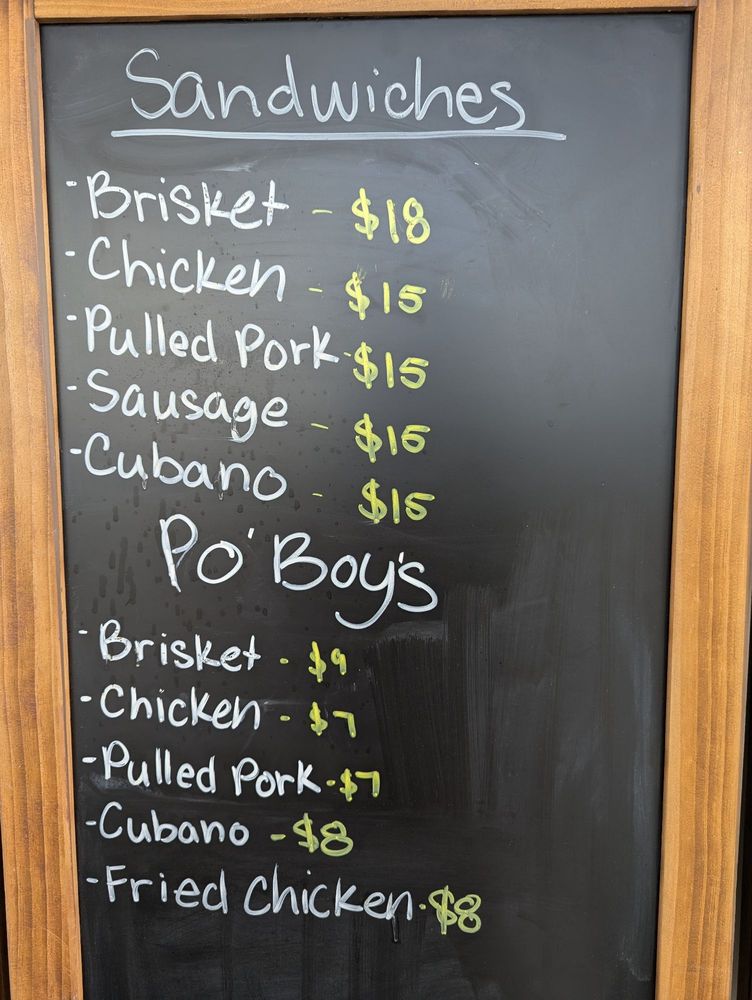 Sandwiches
-Brisket - $18
-Chicken - $15
-Pulled Pork-$15
-Sausage - $15
-Cubano - $15
Po' Boy's
-Brisket - $9
-Chicken - $7
-Pulled Pork-$7
-Cubano -$8
-Fried Chicken-$8